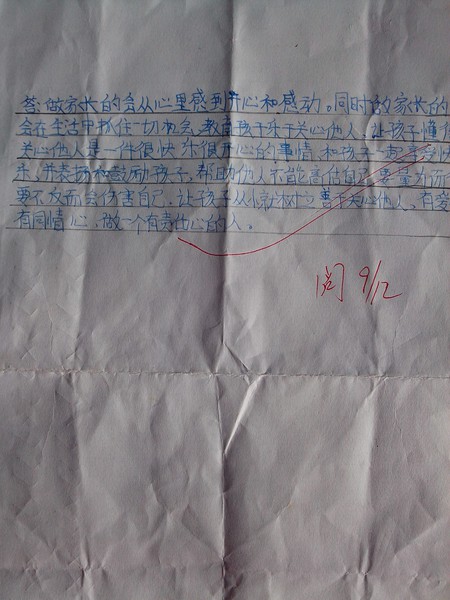 答:做家长的会从心里感到开心和感动。同时的家长的
会在生活中抓住一切机会,教育孩子乐于关心他人,让孩子懂得
关心他人是一件很快乐很开心的事情,和孩子一起享受快
乐,并表扬和鼓励孩子,帮助他人不能高估自己,要量力而
要不反而会伤害自己,让孩子从小就树立善于关心他人、有爱
有同情心,做一个有责任心的人。
阅 9/12